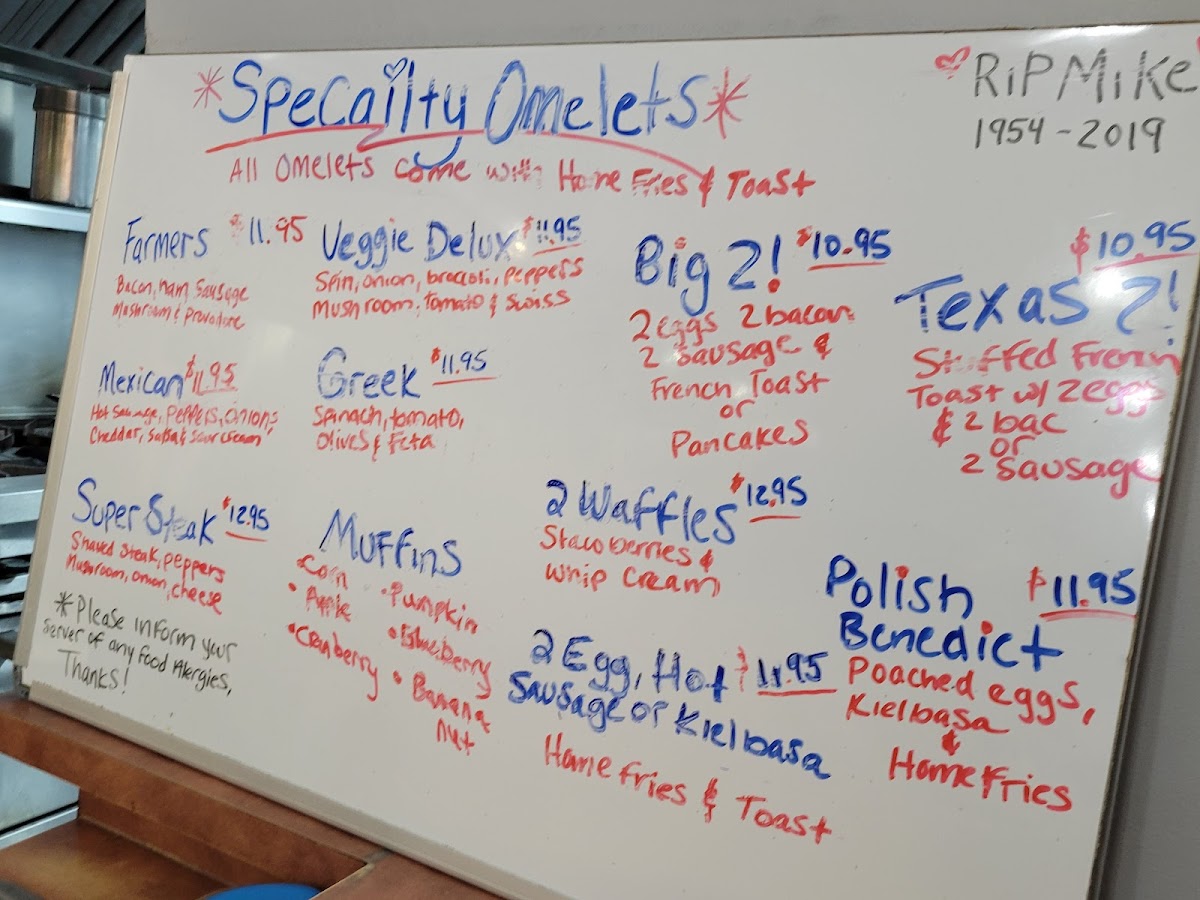 *Specailty Omelets*
All Omelets come with Home Fries & Toast
RiP Mike
1954 - 2019
Farmers $11.95
Bacon, ham, sausage
Mushroom & Provolone
Veggie Delux $11.95
Spin, onion, broccoli, peppers
Mushroom, tomato & Swiss
Mexican $11.95
Hot Sausage, Peppers, onions,
Cheddar, salsa & sour cream
Greek $11.95
Spinach, tomato,
Olives & Feta
Super Steak $12.95
Shaved steak, peppers
Mushroom, onion, cheese
*Please inform your
server of any food Alergies,
Thanks!
Muffins
• Corn
• Apple
• Cranberry
• Pumpkin
• Blueberry
• Banana
nut
Big 2! $10.95
2 eggs 2 bacon
2 Sausage &
French Toast
or
Pancakes
$10.95
Texas 2!
Stuffed French
Toast w/ 2 eggs
& 2 bac
or
2 Sausage
2 Waffles $12.95
Stawberries &
Whip Cream
2 Egg, Hot $11.95
Sausage or Kielbasa
Home fries & Toast
Polish $11.95
Benedict
Poached eggs,
Kielbasa
&
Home Fries